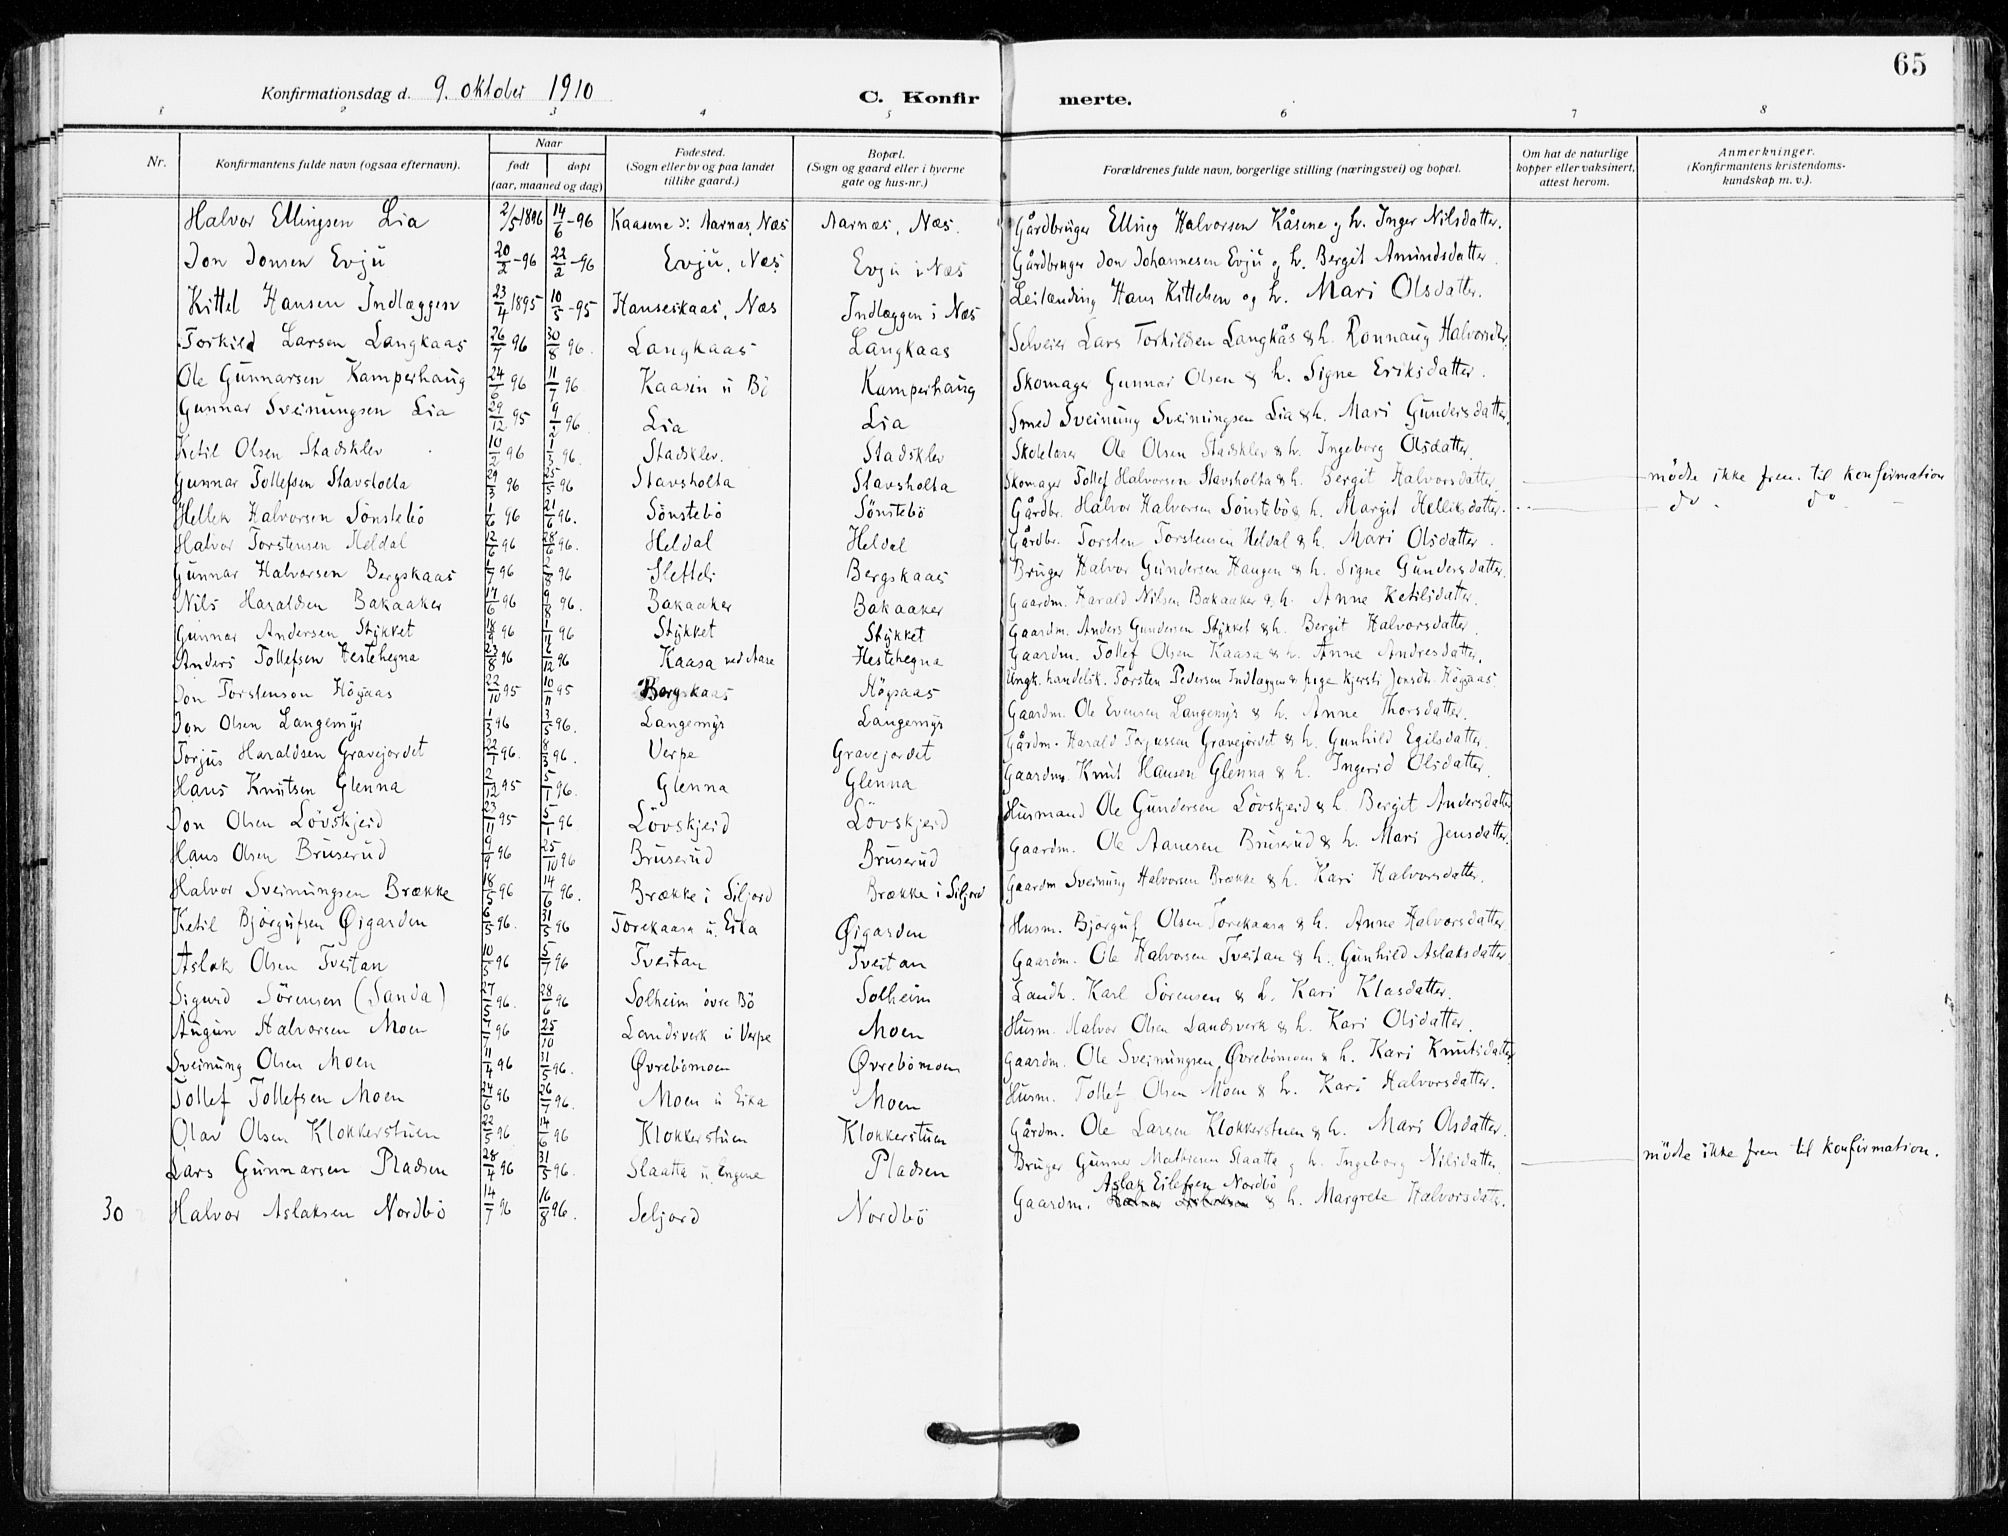 65
Konfirmationsdag d. 9. oktober 1910
C. Konfir merte.
1 2 3 4 5 6 7 8
Nr. Konfirmantens fulde navn (ogsaa efternavn). Naar født døpt (aar, maaned og dag) Fødested. (Sogn eller by og paa landet tillike gaard.) Bopæl. (Sogn og gaard eller i byerne gate og hus-nr.) Forældrenes fulde navn, borgerlige stilling (næringsvei) og bopæl. Om hat de naturlige kopper eller vaksinert, attest herom. Anmerkninger. (Konfirmantens kristendoms-kundskap m. v.).
Halvor Ellingsen Lia 2/5 1896 14/6-96 Kaasene ɔ: Aarnæs, Næs Aarnæs, Næs. Gårdbruger Elling Halvorsen Kåsene og h. Inger Nilsdatter.
Jon Jonsen Evju 20/2-96 22/2-96 Evju, Næs Evju i Næs Gårdbruger Jon Johannesen Evju og h. Bergit Amundsdatter.
Kittel Hansen Indlæggen 23/4 1895 10/5-95 Hanseskaas, Næs Indlæggen i Næs Leilænding Hans Kittelsen og h. Mari Olsdatter.
Torkild Larsen Langkaas 26/7 96 30/8 96. Langkaas Langkaas Selveier Lars Torkildsen Langkås & h. Rønnaug Halvorsdtr.
Ole Gunnarsen Kamperhaug 24/6 96 11/7 96. Kaasin u Bø Kamperhaug Skomager Gunnar Olsen & h. Signe Eriksdatter.
Gunnar Sveinungsen Lia 29/12 95 9/2 96. Lia Lia Smed Sveinung Sveinungsen Lia & h. Mari Gundersdatter.
Ketil Olsen Stadsklev 10/2 96 1/3 96. Stadsklev. Stadsklev Skolelærer Ole Olsen Stadsklev & h. Ingeborg Olsdatter.
Gunnar Tollefsen Stavsholta 29/3 96 25/5 96 Stavsholta Stavsholta Skomager Tollef Halvorsen Stavsholta & h. Bergit Halvorsdatter. — mødte ikke frem til konfirmation
Hellek Halvorsen Sönstebö 1/6 96 21/6 96. Sönstebö Sönstebö Gårdbr. Halvor Halvorsen Sönstebö & h. Margit Helliksdatter. — do. do. —
Halvor Torstensen Heldal 12/6 96 28/6 96. Heldal Heldal Gårdbr. Torsten Torstensen Heldal & h. Mari Olsdatter.
Gunnar Halvorsen Bergskaas 1/7 96 2/8 96 Sletteli Bergskaas Bruger Halvor Gundersen Haugen & h. Signe Gundersdatter.
Nils Haraldsen Bakaaker 17/6 96 9/8 96. Bakaaker Bakaaker Gaardm. Harald Nilsen Bakaaker & h. Anne Ketilsdatter.
Gunnar Andersen Stykket 18/9 96 1/11 96 Stykket Stykket Gaardm. Anders Gundersen Stykket & h. Bergit Halvorsdatter.
Anders Tollefsen Hestehegna 23/8 96 6/12 96 Kaasa ned Aase Hestehegna Gaardm. Tollef Olsen Kaasa & h. Anne Andresdatter.
Jon Torstenson Högaas 22/10 95 10/11 95 Bergskaas Högaas Ungk. handelsk. Torsten Pedersen Indlæggen & pige Kjersti Jonsdtr. Högaas
Jon Olsen Langemyr 1/3 96 3/5 96. Langemyr Langemyr Gaardm. Ole Evensen Langemyr & h. Anne Thorsdatter.
Torjus Haraldsen Gravejordet 22/1 96. 8/3 96. Verpe Gravejordet Gårdm. Harald Torjussen Gravejordet & h. Gunhild Egilsdatter.
Hans Knutsen Glenna 2/12 95 5/1 96. Glenna Glenna Gaardm. Knut Hansen Glenna & h. Ingerid Olsdatter.
Jon Olsen Lövskjeid 23/11 95 5/1 96 Lövskjeid Lövskjeid Husmand Ole Gundersen Lövskjeid & h. Bergit Andersdatter
Hans Olsen Bruserud 9/9 96 25/10 96 Bruserud Bruserud Gaardm. Ole Aanesen Bruserud & h. Mari Jensdatter.
Halvor Sveinungsen Brække 18/5 96 14/6 96. Brække i Siljord Brække i Siljord Gaardm Sveinung Halvorsen Brække & h. Kari Halvorsdatter.
Ketil Bjørgufsen Øigarden 6/5 96. 31/5 96 Torekaasa u. Eika Øigarden Husm. Bjørguf Olsen Torekaasa & h. Anne Halvorsdatter
Aslak Olsen Tveitan 10/5 96 5/7 96 Tveitan Tveitan Gaardm. Ole Halvorsen Tveitan & h. Gunhild Aslaksdatter
Sigurd Sörensen (Sanda) 27/5 96. 28/6 96 Solheim øvre Bö Solheim Landh. Karl Sörensen & h. Kari Klasdatter.
Augun Halvorsen Moen 5/7 96 25/10 Landsverk u Verpe Moen Husm. Halvor Olsen Landsverk & h. Kari Olsdatter.
Sveinung Olsen Moen 11/4 96 31/5 96. Øvrebömoen Øvrebömoen Gaardm. Ole Sveinungsen Øvrebömoen & h. Kari Knutsdatter
Tollef Tollefsen Moen 24/6 96 26/7 96. Moen u Eika Moen Husm. Tollef Olsen Moen & h. Kari Halvorsdatter.
Olav Olsen Klokkerstuen 22/5 96 14/6 96 Klokkerstuen Klokkerstuen Gårdm. Ole Larsen Klokkerstuen & h. Mari Olsdatter.
Lars Gunnarsen Pladsen 28/4 96 31/5 96. Slaatta u. Engene Pladsen Bruger Gunnar Mathisen Slaatta og h. Ingeborg Nilsdatter — mödte ikke frem til konfirmation.
30 Halvor Aslaksen Nordbö 14/7 96 16/8 96. Seljord Nordbö Gaardm. Aslak Eilefsen Nordbö & h. Margrete Halvorsdatter.